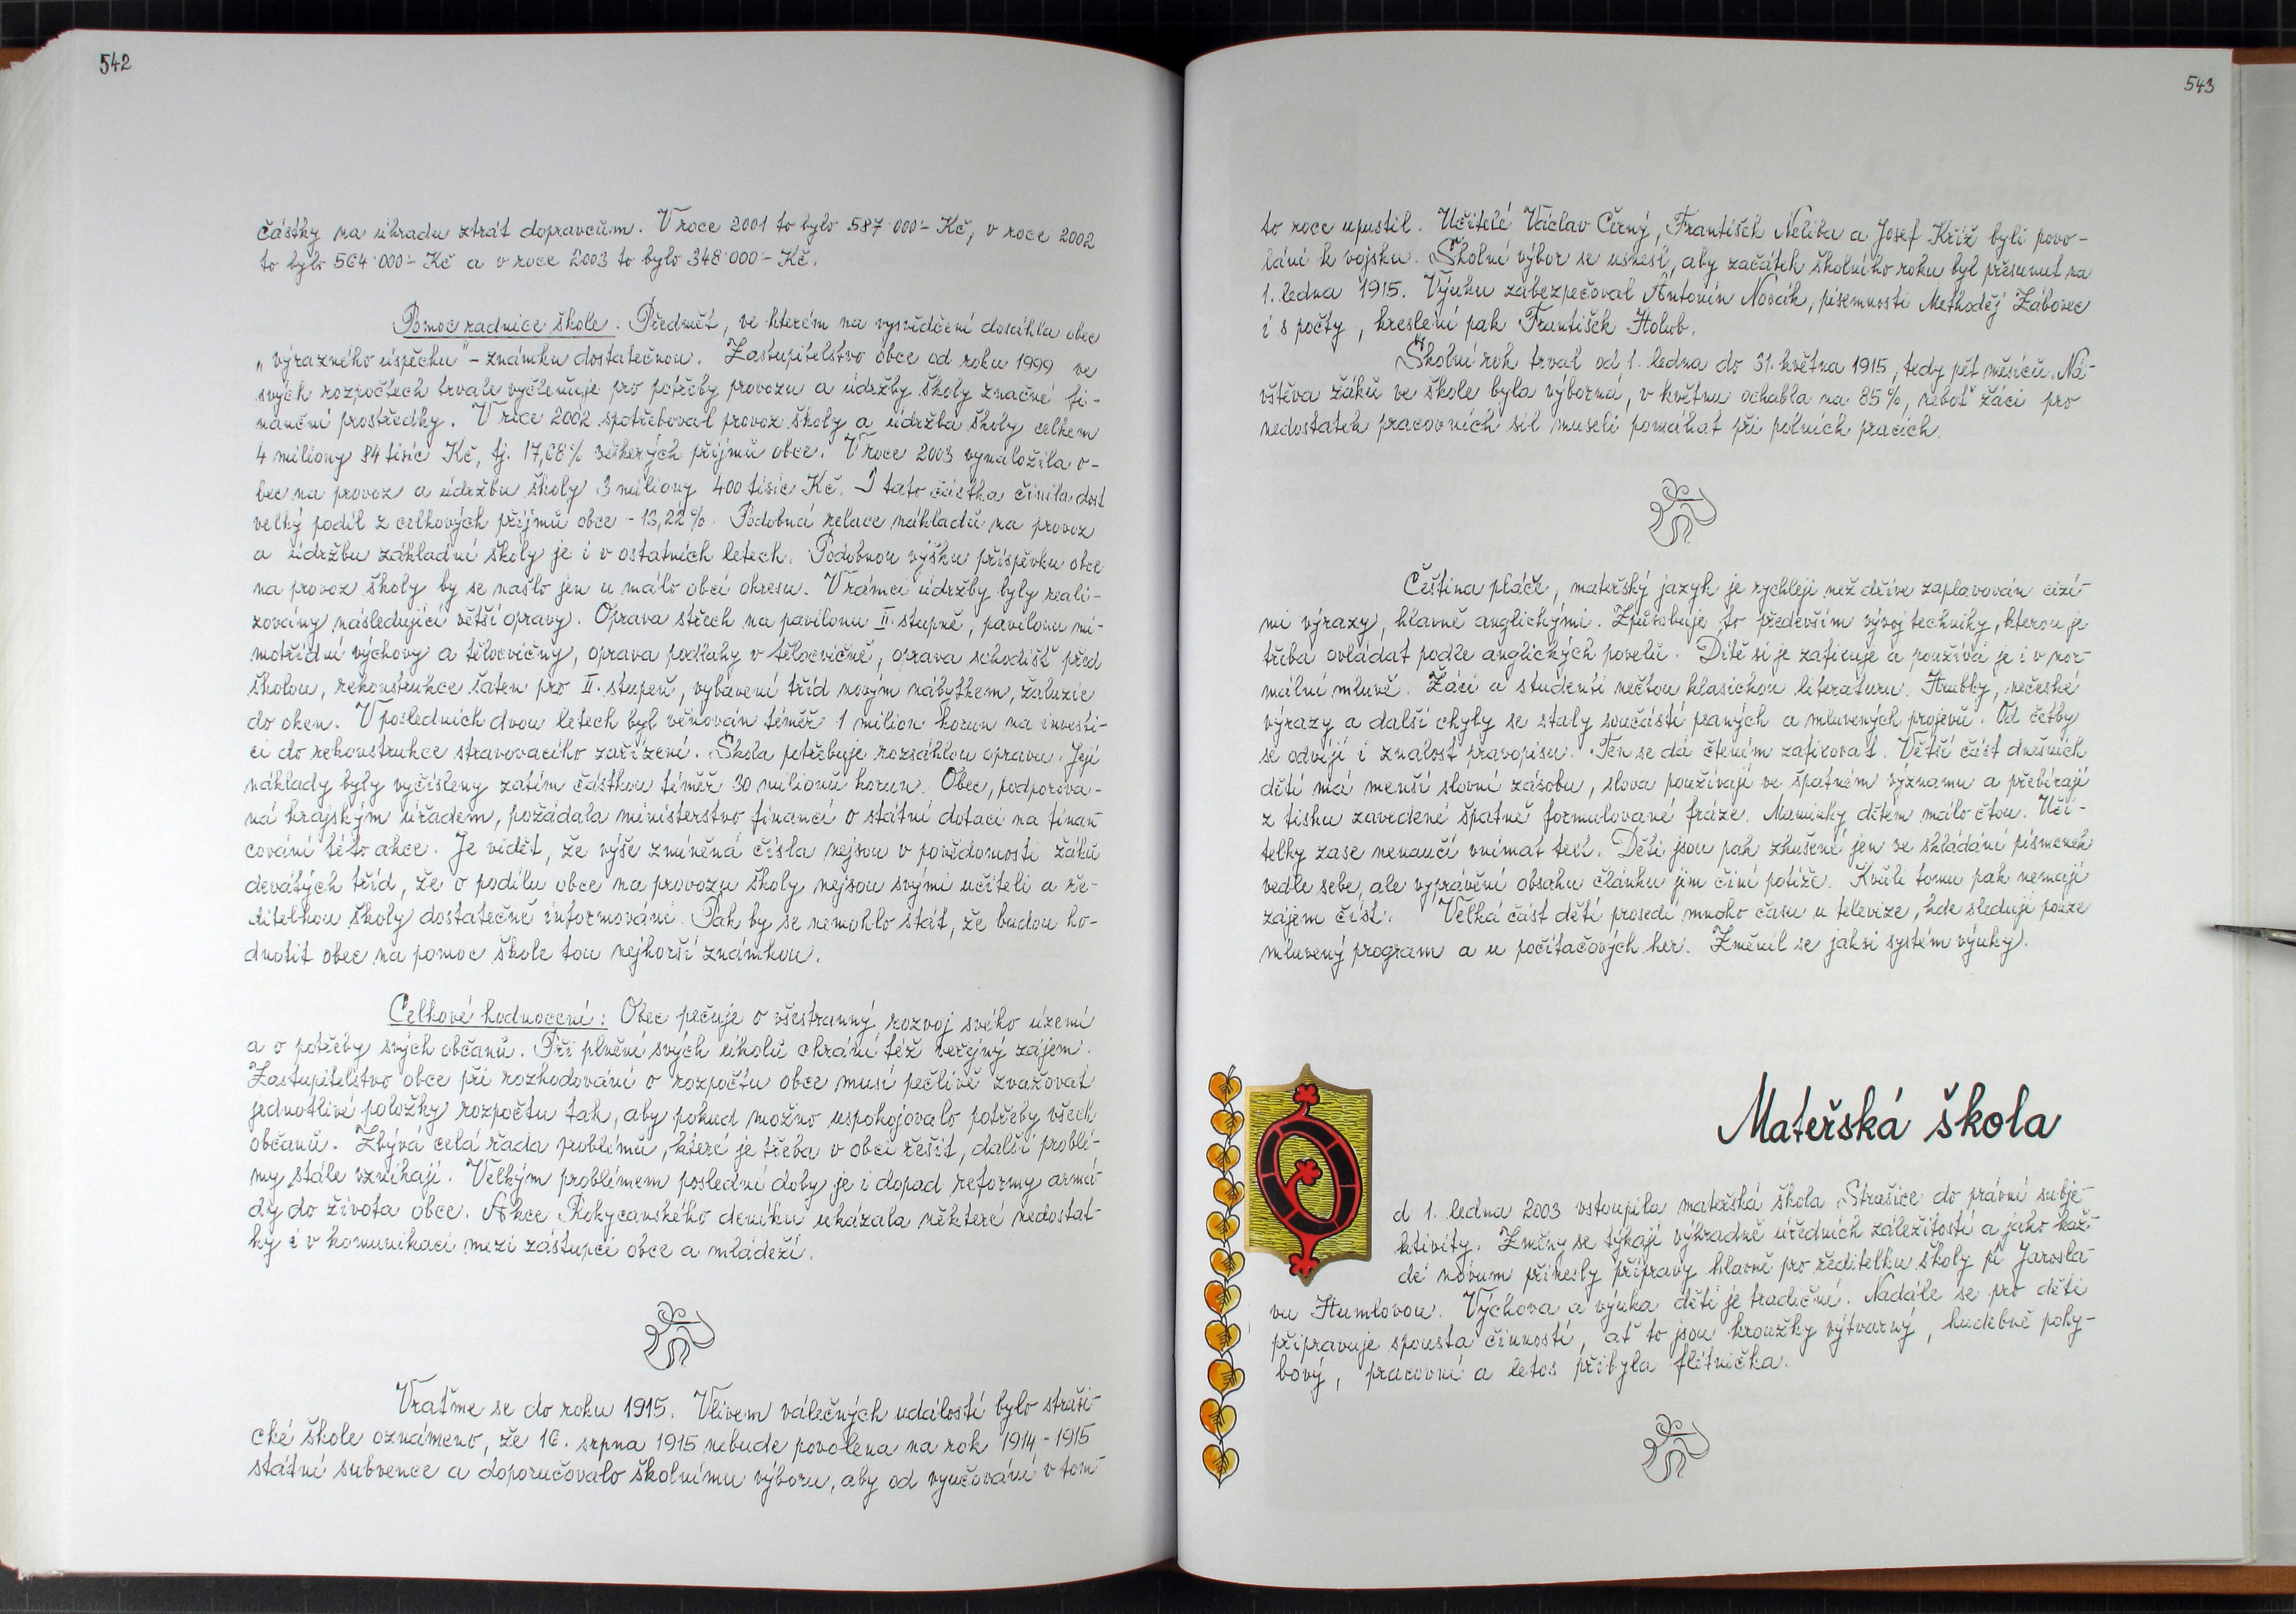 542
částky na úhradu ztrát dopravcům. V roce 2001 to bylo 587·000·- Kč, v roce 2002
to bylo 564·000·- Kč a v roce 2003 to bylo 348·000·- Kč.
Pomoc radnice škole. Předmět, ve kterém na vysvědčení dosáhla obec
„výrazného úspěchu" - známku dostatečnou. Zastupitelstvo obce od roku 1999 ve
svých rozpočtech trvale vyčleňuje pro potřeby provozu a údržby školy značné fi-
nanční prostředky. V roce 2002 spotřeboval provoz školy a údržba školy celkem
4 miliony 84 tisíc Kč, tj. 17,68% veškerých příjmů obce. V roce 2003 vynaložila o-
bec na provoz a údržbu školy 3 miliony 400 tisíc Kč. I tato částka činila dost
velký podíl z celkových příjmů obce - 13,22%. Podobná relace nákladů na provoz
a údržbu základní školy je i v ostatních letech. Podobnou výšku příspěvku obce
na provoz školy by se našlo jen u málo obcí okresu. V rámci údržby byly reali-
zovány následující větší opravy. Oprava střech na pavilonu II. stupně, pavilonu mi-
motřídní výchovy a tělocvičny, oprava podlahy v tělocvičně, oprava schodišť před
školou, rekonstrukce šaten pro II. stupeň, vybavení tříd novým nábytkem, žaluzie
do oken. V posledních dvou letech byl věnován téměř 1 milion korun na investi-
ci do rekonstrukce stravovacího zařízení. Škola potřebuje rozsáhlou opravu. Její
náklady byly vyčísleny zatím částkou téměř 30 milionů korun. Obec, podporova-
ná krajským úřadem, požádala ministerstvo financí o státní dotaci na finan-
cování této akce. Je vidět, že výše zmíněná čísla nejsou v povědomosti žáků
devátých tříd, že o podílu obce na provozu školy nejsou svými učiteli a ře-
ditelkou školy dostatečně informováni. Pak by se nemohlo stát, že budou ho-
dnotit obec na pomoc škole tou nejhorší známkou.
Celkové hodnocení: Obec pečuje o všestranný rozvoj svého území
a o potřeby svých občanů. Při plnění svých úkolů chrání též veřejný zájem.
Zastupitelstvo obce při rozhodování o rozpočtu obce musí pečlivě zvažovat
jednotlivé položky rozpočtu tak, aby pokud možno uspokojovalo potřeby všech
občanů. Zbývá celá řada problémů, které je třeba v obci řešit, další problé-
my stále vznikají. Velkým problémem poslední doby je i dopad reformy armá-
dy do života obce. Akce Rokycanského deníku ukázala některé nedostat-
ky i v komunikaci mezi zástupci obce a mládeží.
Vraťme se do roku 1915. Vlivem válečných událostí bylo straši-
cké škole oznámeno, že 16. srpna 1915 nebude povolena na rok 1914 - 1915
státní subvence a doporučovalo školnímu výboru, aby od vyučování v tom-
543
to roce upustil. Učitelé Václav Černý, František Neliba a Josef Kříž byli povo-
láni k vojsku. Školní výbor se usnesl, aby začátek školního roku byl přesunut na
1. ledna 1915. Výuku zabezpečoval Antonín Novák, písemnosti Methoděj Zábovec
i s počty, kreslení pak František Holub.
Školní rok trval od 1. ledna do 31. května 1915, tedy pět měsíců. Ná-
vštěva žáků ve škole byla výborná, v květnu ochabla na 85%, neboť žáci pro
nedostatek pracovních sil museli pomáhat při polních pracích.
Čeština pláče, mateřský jazyk je rychleji než dříve zaplavován cizí-
mi výrazy, hlavně anglickými. Způsobuje to především vývoj techniky, kterou je
třeba ovládat podle anglických povelů. Dítě si je zafixuje a používá je i v nor-
mální mluvě. Žáci a studenti nečtou klasickou literaturu. Hrubky, nečeské
výrazy a další chyby se staly součástí psaných a mluvených projevů. Od četby
se odvíjí i znalost pravopisu. Ten se dá čtením zafixovat. Větší část dnešních
dětí má menší slovní zásobu, slova používají ve špatném významu a přebírají
z tisku zavedené špatně formulované fráze. Maminky dětem málo čtou. Uči-
telky zase nenaučí vnímat text. Děti jsou pak zkušené jen ve skládání písmenek
vedle sebe, ale vyprávění obsahu článku jim činí potíže. Kvůli tomu pak nemají
zájem číst. Velká část dětí prosedí mnoho času u televize, kde sledují pouze
mluvený program a u počítačových her. Změnil se jaksi systém výuky.
Mateřská škola
Od 1. ledna 2003 vstoupila mateřská škola Strašice do právní subje-
ktivity. Změny se týkají výhradně úředních záležitostí a jako kaž-
dé novum přinesly přípravy hlavně pro ředitelku školy pí Jarosla-
vu Humlovou. Výchova a výuka dětí je tradiční. Nadále se pro děti
připravuje spousta činností, ať to jsou kroužky výtvarný, hudebně pohy-
bový, pracovní a letos přibyla flétnička.